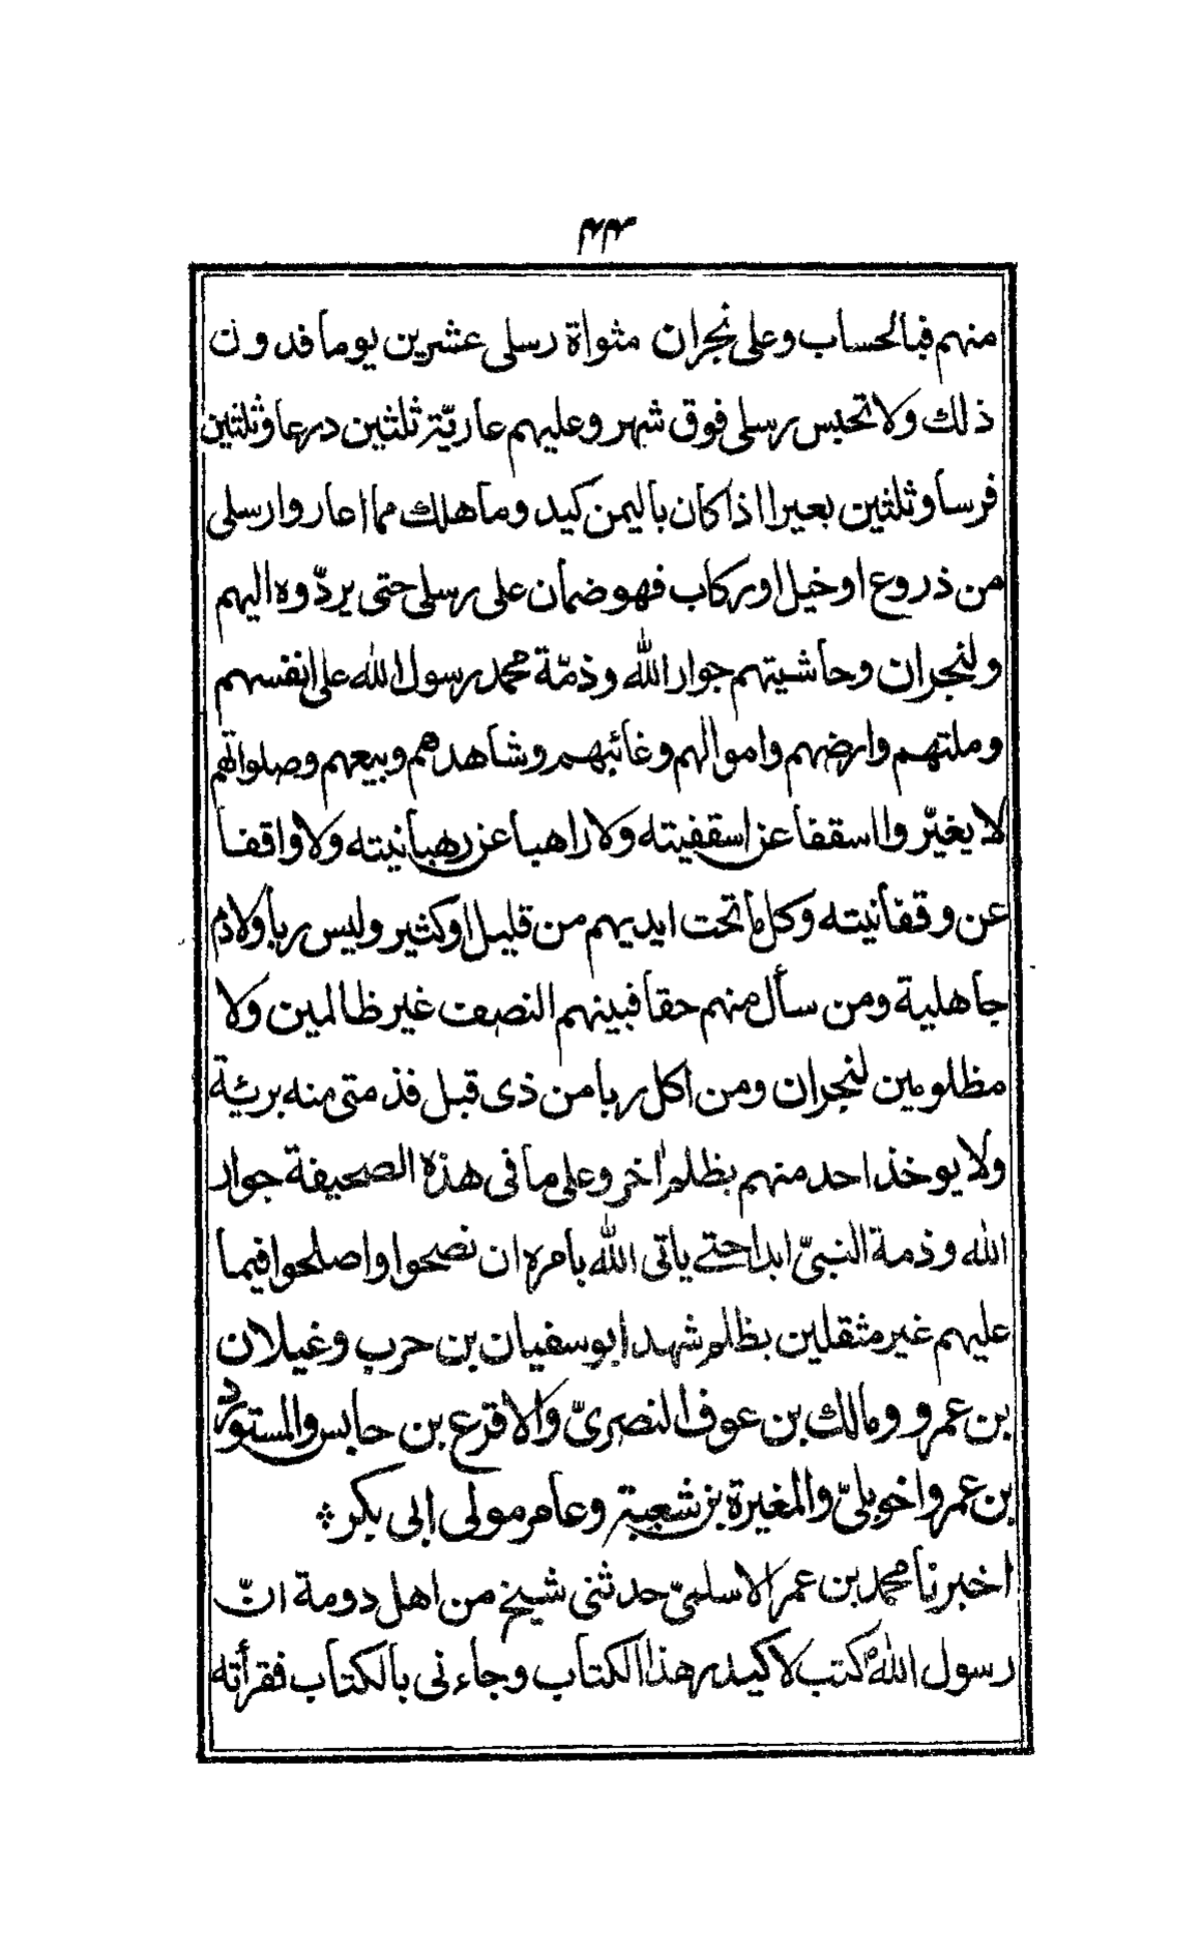 ۴۴
منهم فبالحساب وعلى نجران مثواة رسلى عشرين يوما فدون
ذلك ولا تحبس رسلى فوق شهر وعليهم عارية ثلثين درعا وثلثين
فرسا وثلثين بعيرا اذا كان باليمن كيد وما هلك مما اعاروا رسلى
من ذروع او خيل او ركاب فهو ضمان على رسلى حتى يردّوه اليهم
ولنجران وحاشيتهم جوار الله وذمّة محمد رسول الله على انفسهم
وملتهم وارضهم واموالهم وغائبهم وشاهدهم وبيعهم وصلواتهم
لا يغيّروا اسقفا عن اسقفيته ولا راهبا عن رهبانيته ولا واقفا
عن وقفانيته وكل ما تحت ايديهم من قليل او كثير وليس ربا ولا دم
جاهلية ومن سأل منهم حقا فبينهم النصف غير ظالمين ولا
مظلومين لنجران ومن اكل ربا من ذى قبل فذمتى منه بريئة
ولا يوخذ احد منهم بظلم اخر وعلى ما فى هذه الصحيفة جوار
الله وذمة النبىّ ابدا حتے ياتى الله بامره ان نصحوا واصلحوا فيما
عليهم غير مثقلين بظلم شهد ابو سفيان بن حرب وغيلان
بن عمرو ومالك بن عوف النصرىّ والاقرع بن حابس والمستورد
بن عمرو اخو بلىّ والمغيرة بن شعبة وعامر مولى ابى بكر ؞
اخبرنا محمد بن عمر الاسلمىّ حدثنى شيخ من اهل دومة انّ
رسول الله ؐ كتب لاكيدر هذا الكتاب وجاءنى بالكتاب فقرأته